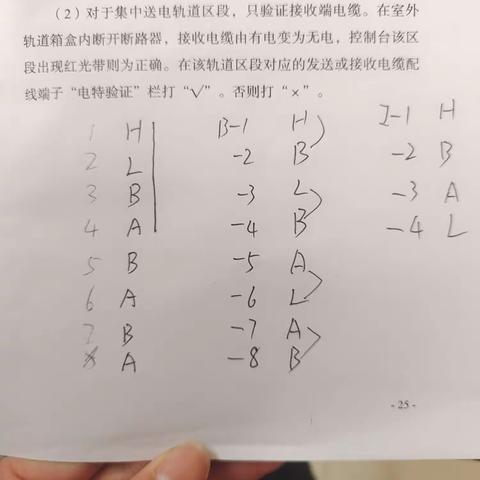 （2）对于集中送电轨道区段，只验证接收端电缆。在室外
轨道箱盒内断开断路器，接收电缆由有电变为无电，控制台该区
段出现红光带则为正确。在该轨道区段对应的发送或接收电缆配
线端子“电特验证”栏打“√”。否则打“×”。
1 H B-1 H I-1 H
2 L -2 B -2 B
3 B -3 L -3 A
4 A -4 B -4 L
5 B -5 A
6 A -6 L
7 B -7 A
8 A -8 B
- 25 -